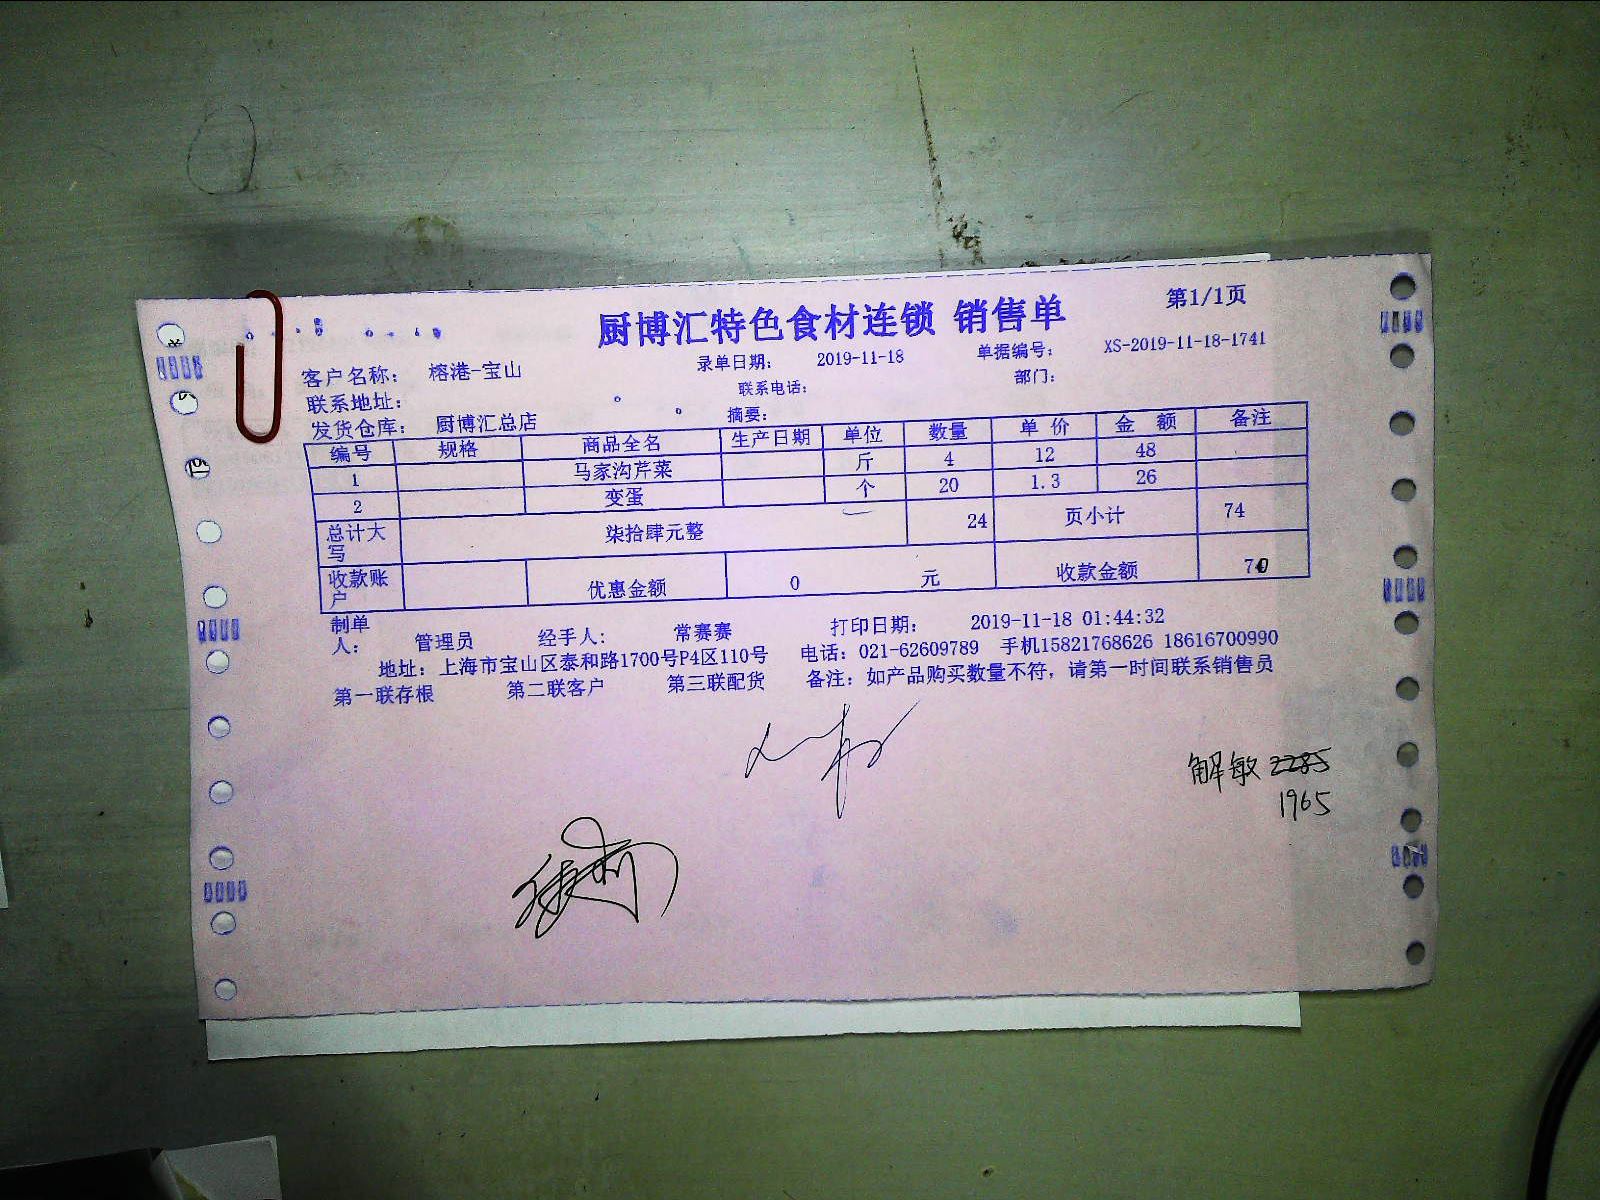 第1/1页
厨博汇特色食材连锁 销售单
客户名称： 榕港-宝山 录单日期： 2019-11-18 单据编号： XS-2019-11-18-1741
联系地址： 联系电话： 部门：
发货仓库： 厨博汇总店 摘要：
编号 规格 商品全名 生产日期 单位 数量 单价 金额 备注
1 马家沟芹菜 斤 4 12 48
2 变蛋 个 20 1.3 26
总计大写 柒拾肆元整 24 页小计 74
收款账户 优惠金额 0 元 收款金额 70
制单人： 管理员 经手人： 常赛赛 打印日期： 2019-11-18 01:44:32
地址：上海市宝山区泰和路1700号P4区110号 电话：021-62609789 手机15821768626 18616700990
第一联存根 第二联客户 第三联配货 备注：如产品购买数量不符，请第一时间联系销售员
解敏 2285
1965